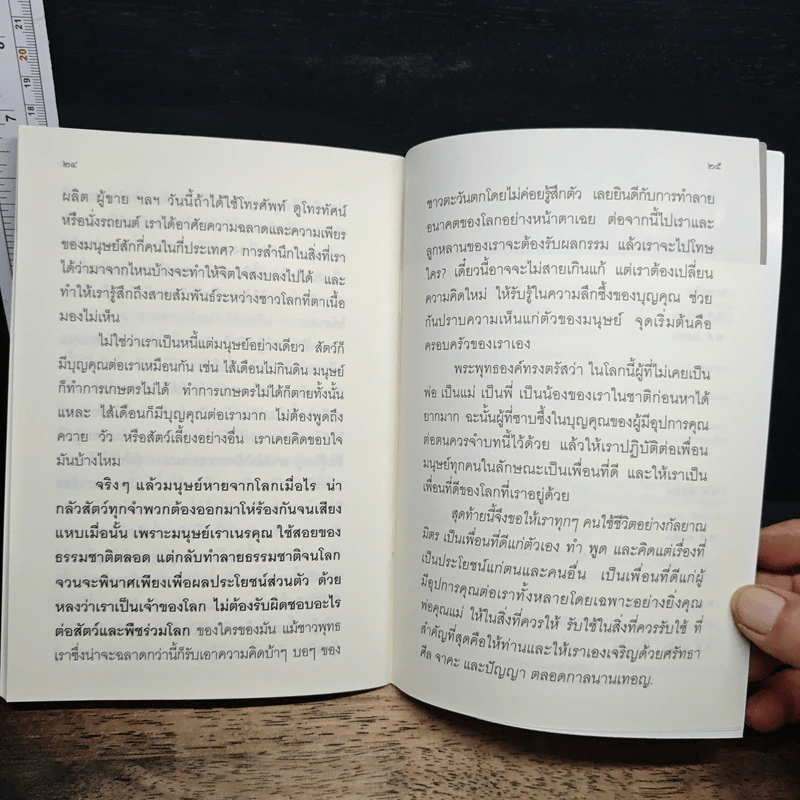 ๒๔
ผลิต ผู้ขาย ฯลฯ วันนี้ถ้าได้ใช้โทรศัพท์ ดูโทรทัศน์
หรือนั่งรถยนต์ เราได้อาศัยความฉลาดและความเพียร
ของมนุษย์สักกี่คนในกี่ประเทศ? การสำนึกในสิ่งที่เรา
ได้ว่ามาจากไหนบ้างจะทำให้จิตใจสงบลงไปได้ และ
ทำให้เรารู้สึกถึงสายสัมพันธ์ระหว่างชาวโลกที่ตาเนื้อ
มองไม่เห็น
ไม่ใช่ว่าเราเป็นหนี้แต่มนุษย์อย่างเดียว สัตว์ก็
มีบุญคุณต่อเราเหมือนกัน เช่น ไส้เดือนไม่กินดิน มนุษย์
ก็ทำการเกษตรไม่ได้ ทำการเกษตรไม่ได้ก็ตายทั้งนั้น
แหละ ไส้เดือนก็มีบุญคุณต่อเรามาก ไม่ต้องพูดถึง
ควาย วัว หรือสัตว์เลี้ยงอย่างอื่น เราเคยคิดขอบใจ
มันบ้างไหม
จริงๆ แล้วมนุษย์หายจากโลกเมื่อไร น่า
กลัวสัตว์ทุกจำพวกต้องออกมาโห่ร้องกันจนเสียง
แหบเมื่อนั้น เพราะมนุษย์เราเนรคุณ ใช้สอยของ
ธรรมชาติตลอด แต่กลับทำลายธรรมชาติจนโลก
จวนจะพินาศเพียงเพื่อผลประโยชน์ส่วนตัว ด้วย
หลงว่าเราเป็นเจ้าของโลก ไม่ต้องรับผิดชอบอะไร
ต่อสัตว์และพืชร่วมโลก ของใครของมัน แม้ชาวพุทธ
เราซึ่งน่าจะฉลาดกว่านี้ก็รับเอาความคิดบ้าๆ บอๆ ของ
๒๕
ชาวตะวันตกโดยไม่ค่อยรู้สึกตัว เลยยินดีกับการทำลาย
อนาคตของโลกอย่างหน้าตาเฉย ต่อจากนี้ไปเราและ
ลูกหลานของเราจะต้องรับผลกรรม แล้วเราจะไปโทษ
ใคร? เดี๋ยวนี้อาจจะไม่สายเกินแก้ แต่เราต้องเปลี่ยน
ความคิดใหม่ ให้รับรู้ในความลึกซึ้งของบุญคุณ ช่วย
กันปราบความเห็นแก่ตัวของมนุษย์ จุดเริ่มต้นคือ
ครอบครัวของเราเอง
พระพุทธองค์ทรงตรัสว่า ในโลกนี้ผู้ที่ไม่เคยเป็น
พ่อ เป็นแม่ เป็นพี่ เป็นน้องของเราในชาติก่อนหาได้
ยากมาก ฉะนั้นผู้ที่ซาบซึ้งในบุญคุณของผู้มีอุปการคุณ
ต่อตนควรจำบทนี้ไว้ด้วย แล้วให้เราปฏิบัติต่อเพื่อน
มนุษย์ทุกคนในลักษณะเป็นเพื่อนที่ดี และให้เราเป็น
เพื่อนที่ดีของโลกที่เราอยู่ด้วย
สุดท้ายนี้จึงขอให้เราทุกๆ คนใช้ชีวิตอย่างกัลยาณ
มิตร เป็นเพื่อนที่ดีแก่ตัวเอง ทำ พูด และคิดแต่เรื่องที่
เป็นประโยชน์แก่ตนและคนอื่น เป็นเพื่อนที่ดีแก่ผู้
มีอุปการคุณต่อเราทั้งหลายโดยเฉพาะอย่างยิ่งคุณ
พ่อคุณแม่ ให้ในสิ่งที่ควรให้ รับใช้ในสิ่งที่ควรรับใช้ ที่
สำคัญที่สุดคือให้ท่านและให้เราเองเจริญด้วยศรัทธา
ศีล จาคะ และปัญญา ตลอดกาลนานเทอญ.
7
18
19
20
21